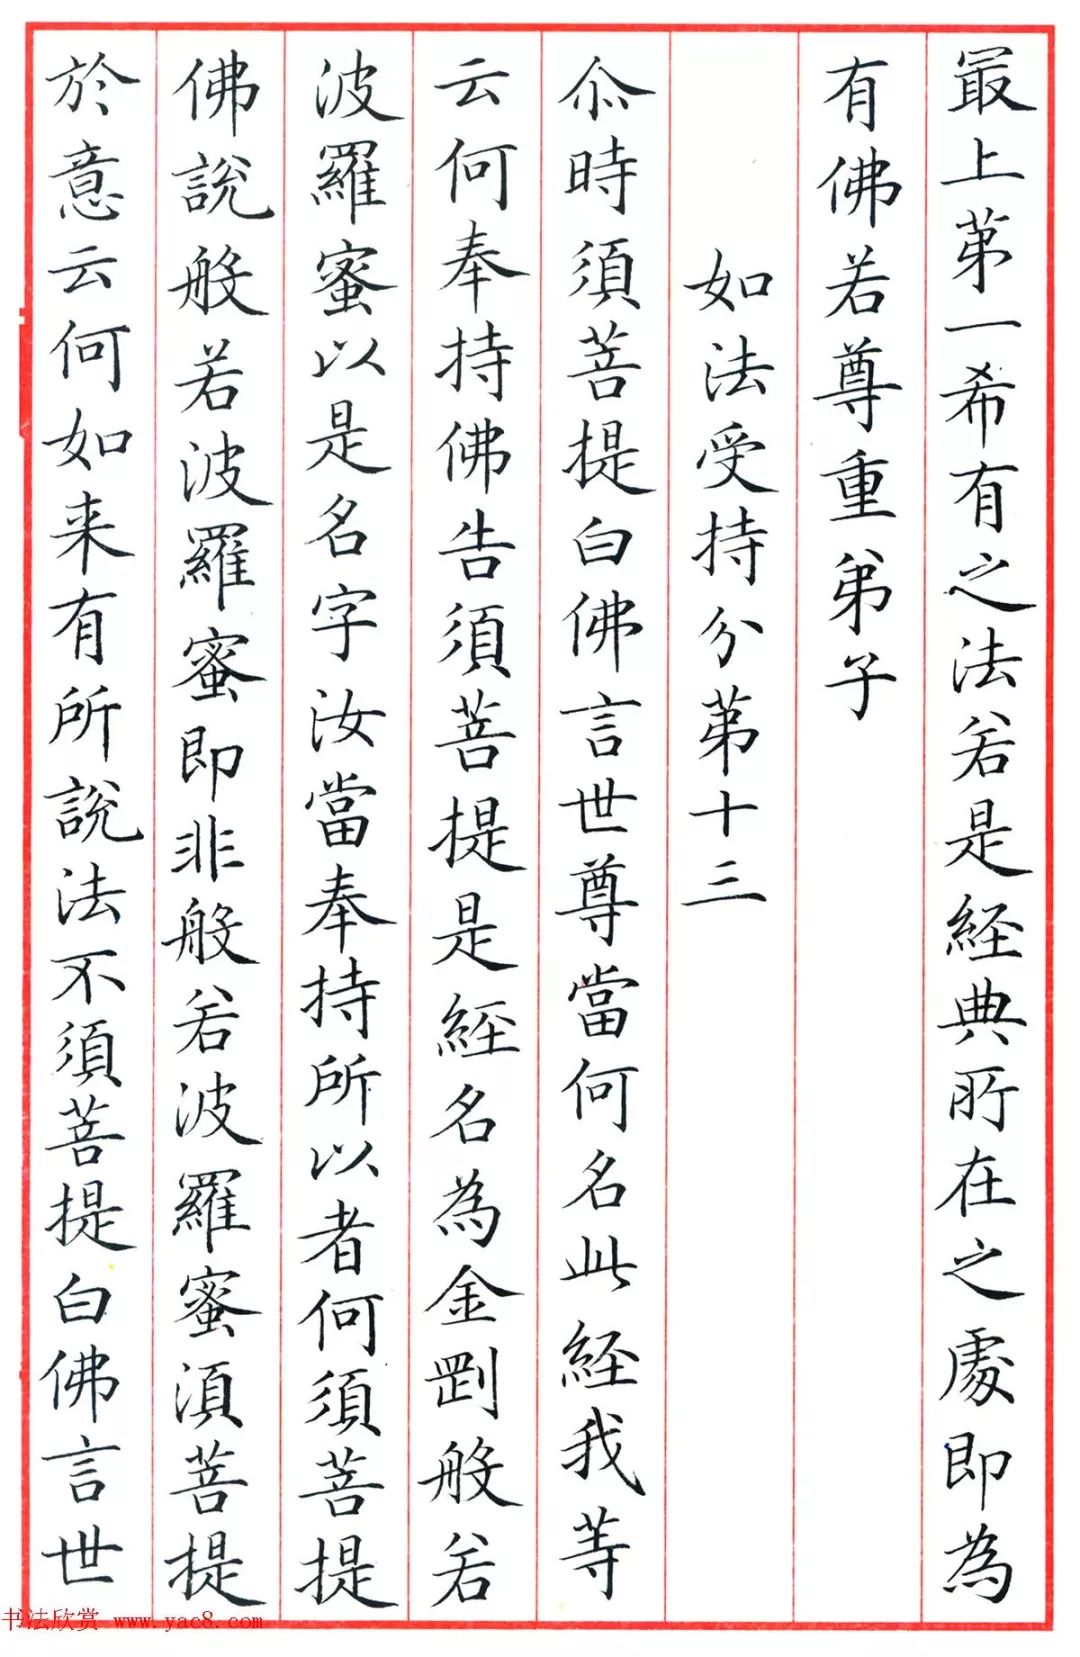 最上第一希有之法若是經典所在之處即為
有佛若尊重弟子
如法受持分第十三
尒時須菩提白佛言世尊當何名此經我等
云何奉持佛告須菩提是經名為金剛般若
波羅蜜以是名字汝當奉持所以者何須菩提
佛說般若波羅蜜即非般若波羅蜜須菩提
於意云何如来有所說法不須菩提白佛言世
书法欣赏 www.yac8.com